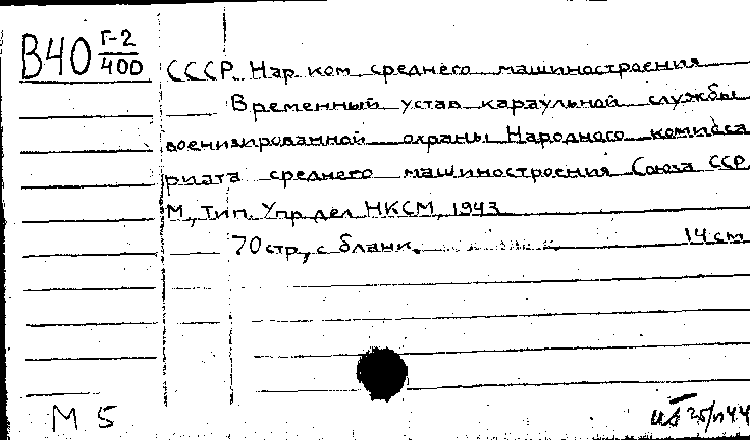 В40 Г-2
400
СССР. Нар. ком. среднего машиностроения
Временный устав караульной службы
военизированной охраны Народного комисса
риата среднего машиностроения Союза ССР
М., Тип. Упр. дел НКСМ, 1943
70 стр., с бланк. 14 см
М 5